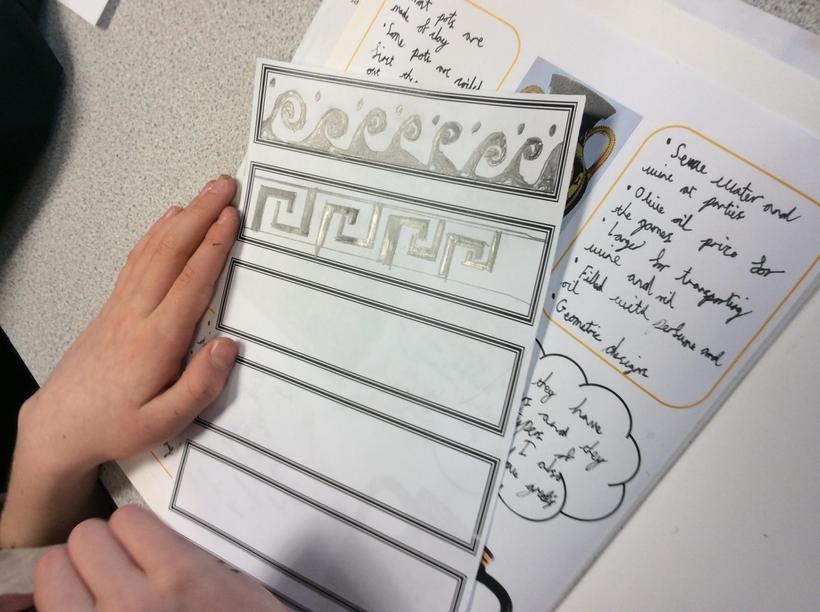 pots are
made of clay
• Some pots are
first
out
• Serve water and
wine at parties
• Olive oil prize for
the games
• Large for transporting
wine and oil
• Filled with perfume and
oil
• Geometric designs
they have
and they
of
I also